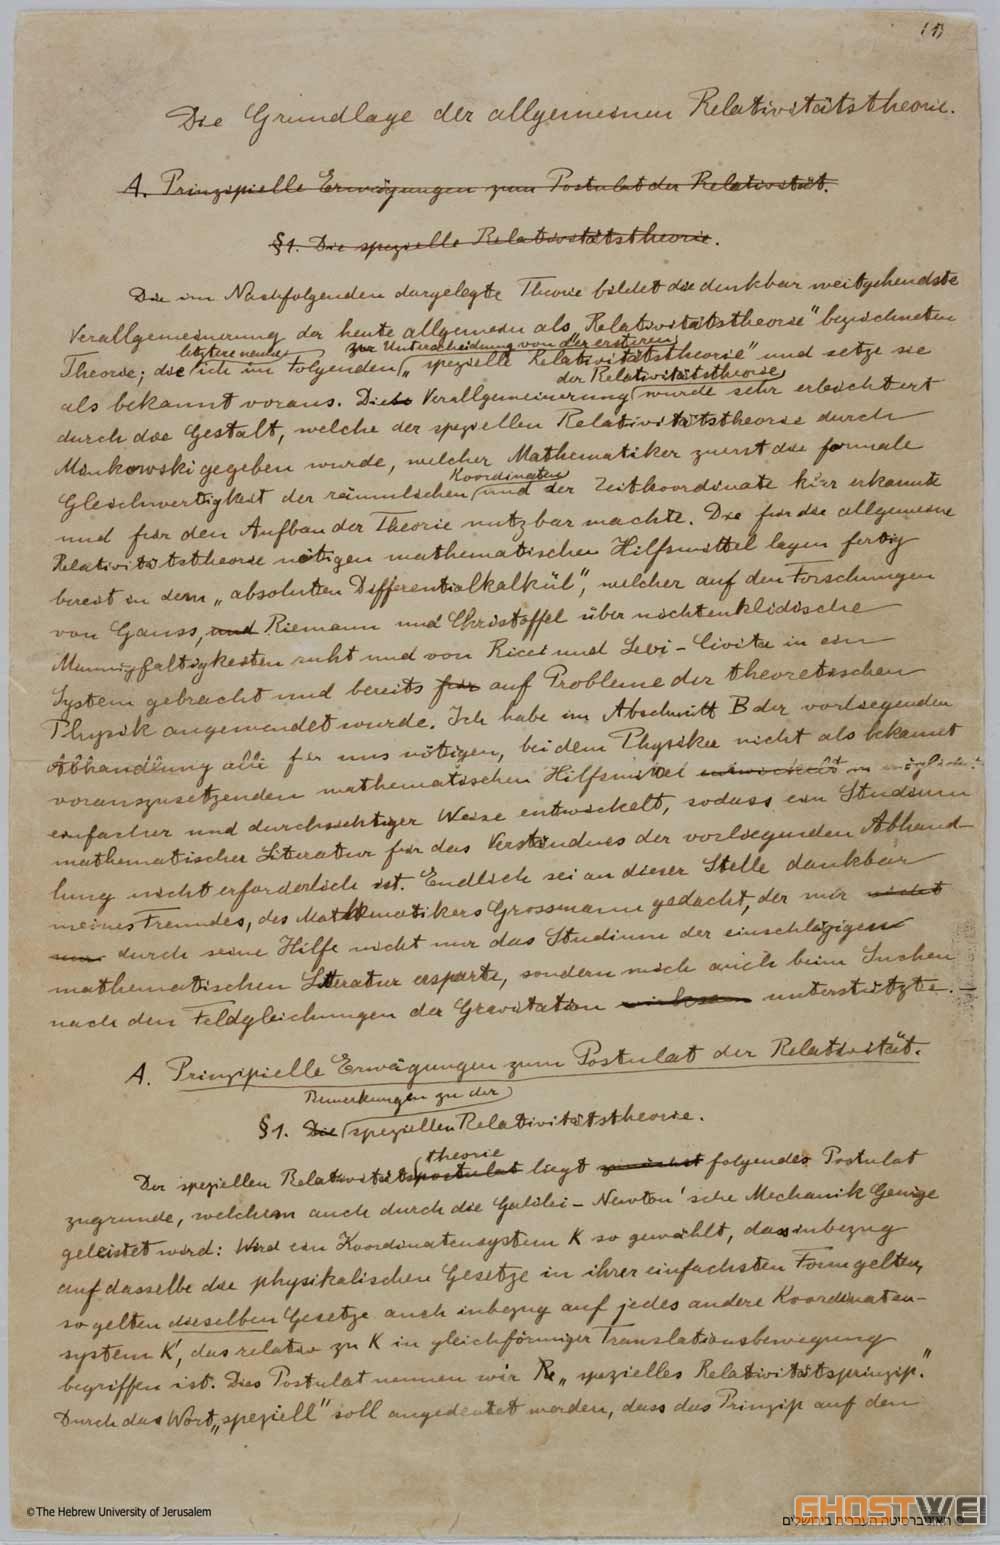 (1)
Die Grundlage der allgemeinen Relativitätstheorie.
A. Prinzipielle Erwägungen zum Postulat der Relativität.
§1. Die spezielle Relativitätstheorie.
Die im Nachfolgenden dargelegte Theorie bildet die denkbar weitgehendste
Verallgemeinerung der heute allgemein als „Relativitätstheorie" bezeichneten
letztere nenne zur Unterscheidung von der ersteren
Theorie; die ich im Folgenden „spezielle Relativitätstheorie" und setze sie
der Relativitätstheorie
als bekannt voraus. Die Verallgemeinerung wurde sehr erleichtert
durch die Gestalt, welche der speziellen Relativitätstheorie durch
Minkowski gegeben wurde, welcher Mathematiker zuerst die formale
Koordinaten
Gleichwertigkeit der räumlichen und der Zeitkoordinate klar erkannte
und für den Aufbau der Theorie nutzbar machte. Die für die allgemeine
Relativitätstheorie nötigen mathematischen Hilfsmittel lagen fertig
bereit in dem „absoluten Differentialkalkül", welcher auf den Forschungen
von Gauss, und Riemann und Christoffel über nichteuklidische
Mannigfaltigkeiten ruht und von Ricci und Levi-Civita in ein
System gebracht und bereits für auf Probleme der theoretischen
Physik angewendet wurde. Ich habe im Abschnitt B der vorliegenden
Abhandlung alle für uns nötigen, bei dem Physiker nicht als bekannt
vorauszusetzenden mathematischen Hilfsmittel entwickelt in möglichst
einfacher und durchsichtiger Weise entwickelt, sodass ein Studium
mathematischer Literatur für das Verständnis der vorliegenden Abhand-
lung nicht erforderlich ist. Endlich sei an dieser Stelle dankbar
meines Freundes, des Mathematikers Grossmann gedacht, der mir nicht
nur durch seine Hilfe nicht nur das Studium der einschlägigen
mathematischen Literatur ersparte, sondern mich auch beim Suchen
nach den Feldgleichungen der Gravitation unterstützte.
A. Prinzipielle Erwägungen zum Postulat der Relativität.
Bemerkungen zu der
§1. Die speziellen Relativitätstheorie.
theorie
Der speziellen Relativitätspostulat liegt zunächst folgendes Postulat
zugrunde, welchem auch durch die Galilei-Newton'sche Mechanik Genüge
geleistet wird: Wird ein Koordinatensystem K so gewählt, dass inbezug
auf dasselbe die physikalischen Gesetze in ihrer einfachsten Form gelten,
so gelten dieselben Gesetze auch inbezug auf jedes andere Koordinaten-
system K', das relativ zu K in gleichförmiger Translationsbewegung
begriffen ist. Dies Postulat nennen wir „spezielles Relativitätsprinzip."
Durch das Wort „speziell" soll angedeutet werden, dass das Prinzip auf den
©The Hebrew University of Jerusalem
GHOSTWEI
© האוניברסיטה העברית בירושלים